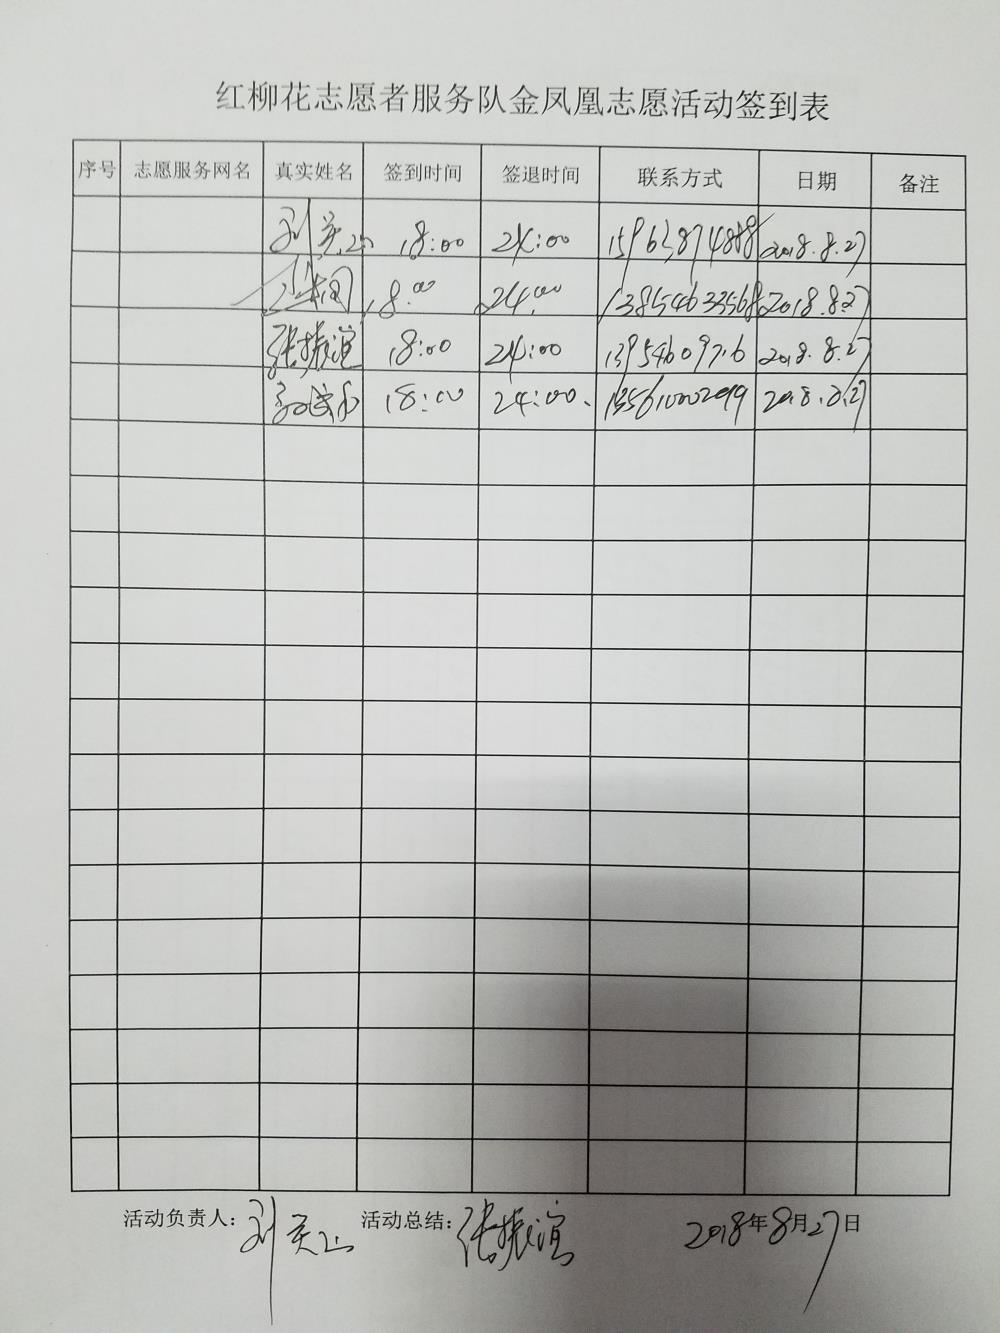 红柳花志愿者服务队金凤凰志愿活动签到表
序号 志愿服务网名 真实姓名 签到时间 签退时间 联系方式 日期 备注
刘英山 18:00 24:00 15963874888 2018.8.27
18:00 24:00 13854633568 2018.8.27
张振谊 18:00 24:00 2018.8.27
18:00 24:00. 13561000299 2018.8.27
活动负责人: 刘英山 活动总结: 张振谊 2018年8月27日